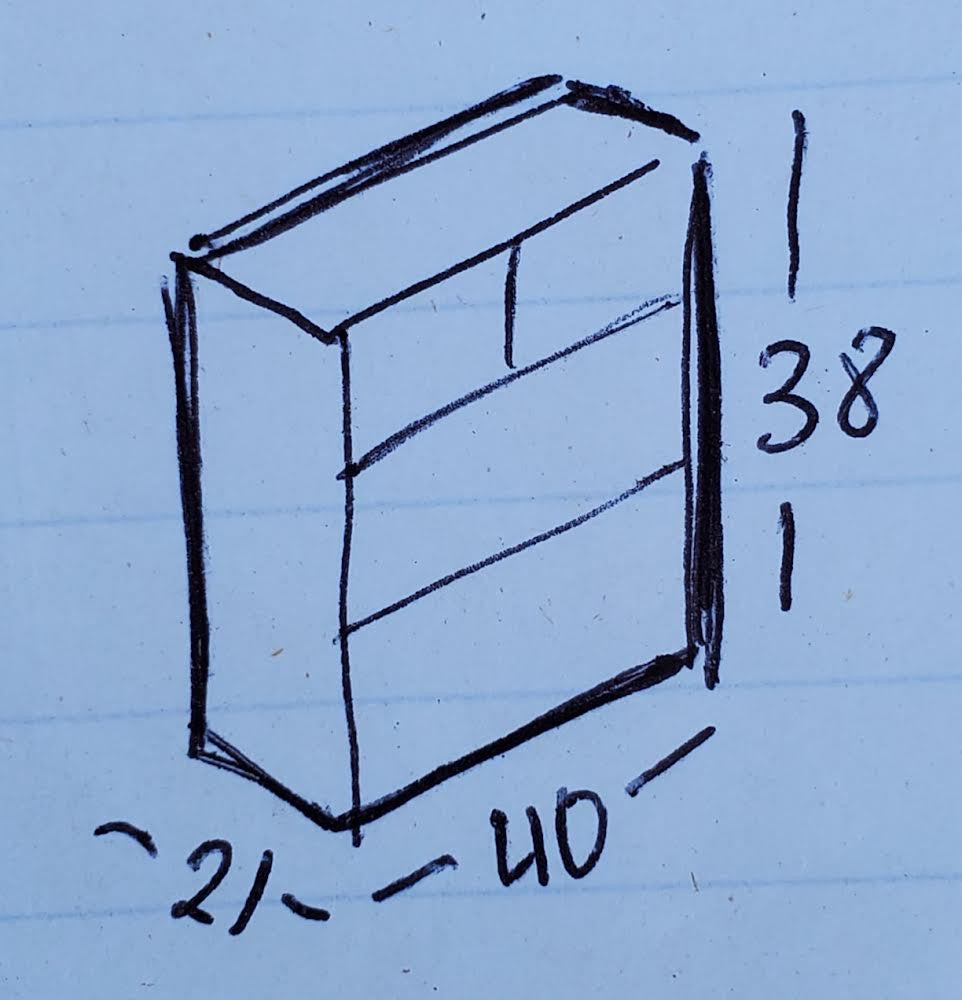 38
40
21